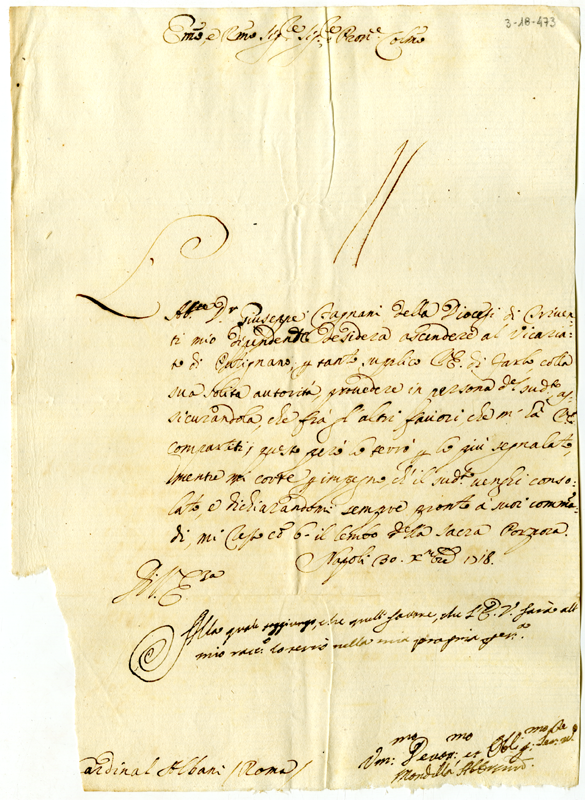 3-18-473
Em̃o e Rm̃o Sig.re Sig.re Pron.e Colm̃o
L'Abb.te D.r Giuseppe Cagnani della Diocesi di Triven-
ti mio dipendente desidera ascendere al Vicaria-
to di Putignano, p tanto suplico V.E. di farlo colla
sua solita autorità provedere in persona del sud.to as-
sicurandola, che frà gl'altri favori che m'hà V.E.
compartiti, questo però lo terrò p lo più segnalato,
mentre mi corre p impegno ch'il sud.to venghi conso-
lato e dichiarandomi sempre pronto a' suoi comm̃a-
di, mi resto cõ b. il lembo della Sacra Porpora.
Napoli 30. X.bre 1718.
Di V. E.za
Alla quale soggiungo, che quell favore, che l'E.V. farà all
mio racc.to lo terrò nella mia propria per.a
Vm.mo Devot.mo et Oblig.mo
Cardinal Albani (Roma)